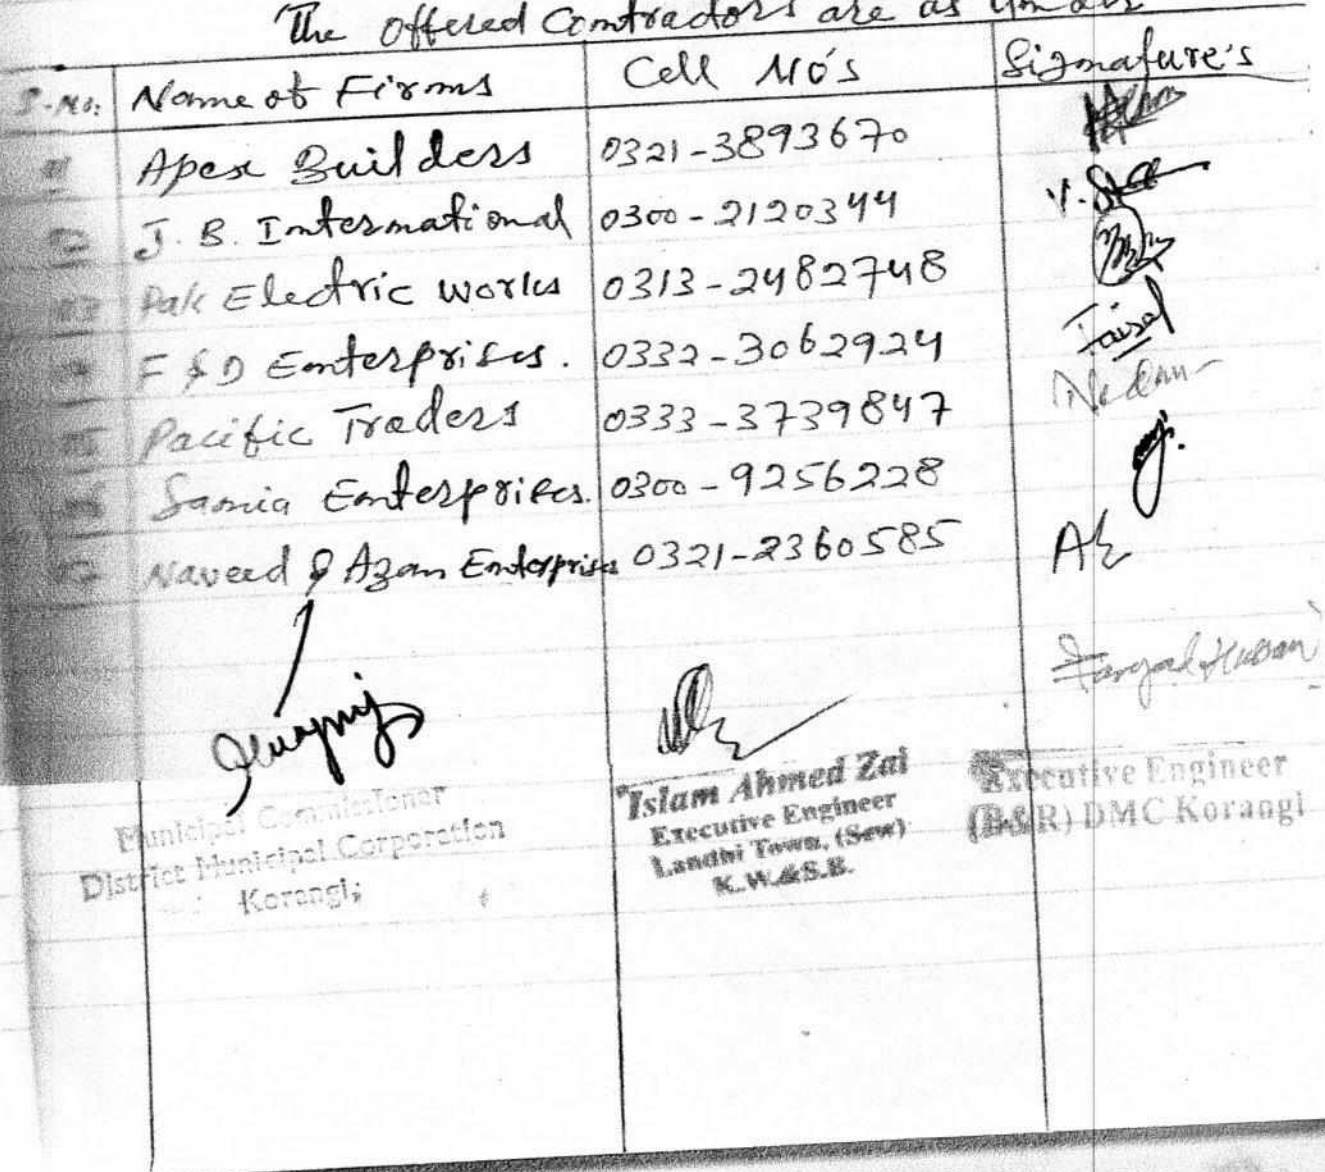 The offered Contractors are as under
S.No: Name of Firms Cell No's Signature's
01 Apex Builders 0321-3893670
02 J. B. International 0300-2120344
03 Pak Electric works 0313-2482748
04 F & D Enterprises. 0332-3062924 Faisal
05 Pacific Traders 0333-3739847
06 Samia Enterprises. 0300-9256228
07 Naveed & Azam Enterprises 0321-2360585
Municipal Commissioner
District Municipal Corporation
Korangi;
Islam Ahmed Zai
Executive Engineer
Landhi Town, (Sew)
K.W.&S.B.
Executive Engineer
(B&R) DMC Korangi